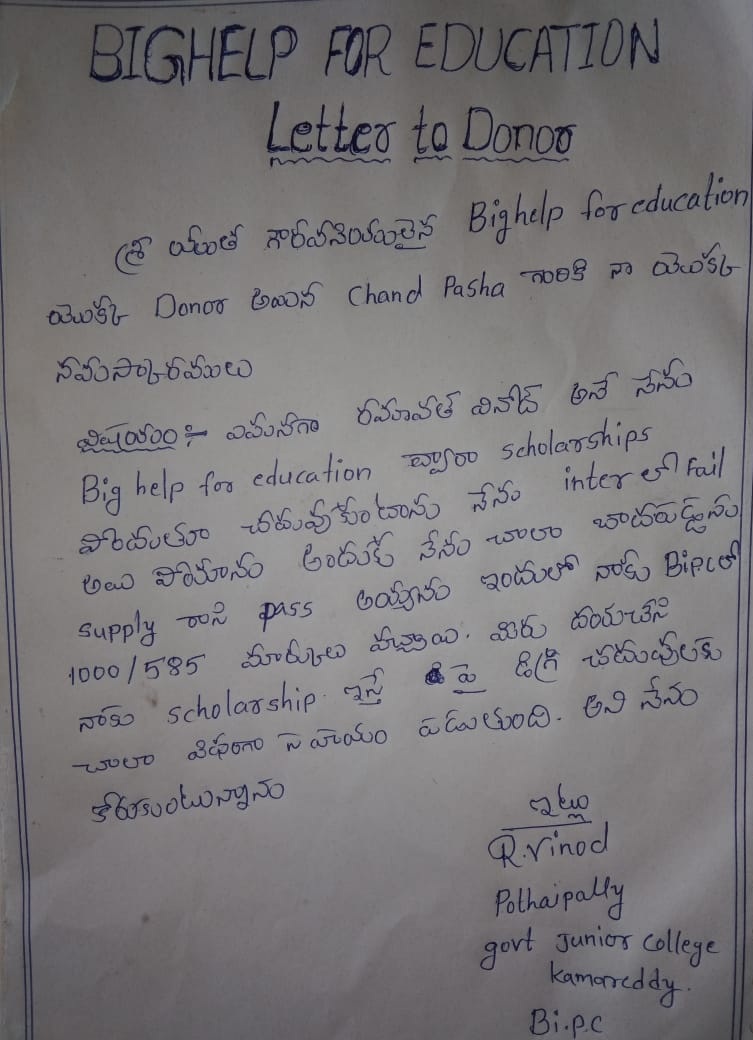 BIGHELP FOR EDUCATION
Letter to Donor
శ్రీ యుత గౌరవనీయులైన Bighelp for education
యొక్క Donor అయిన Chand Pasha గారికి నా యొక్క
నమస్కారములు
విషయం :- ఏమనగా రమావత్ వినోద్ అనే నేను
Big help for education ద్వారా scholarships
పొందుతూ చదువుకుంటాను నేను inter లో Fail
అయి పోయాను అందుకే నేను చాలా
supply రాసి pass అయ్యాను ఇందులో నాకు Bipcలో
1000/585 మార్కులు వచ్చాయి. మీరు దయచేసి
నాకు scholarship ఇస్తే పై డిగ్రీ చదువులకు
చాలా విధాలుగా సహాయం పడుతుంది. అని నేను
కోరుకుంటున్నాను
ఇట్లు
R.Vinod
Polhaipally
govt Junior college
kamareddy.
Bi.P.C